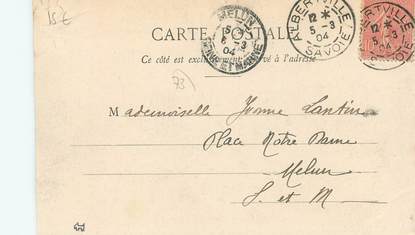 15 E
CARTE POSTALE
Ce côté est exclusivement réservé à l'adresse
MELUN
6-3
04
SEINE ET MARNE
ALBERTVILLE
12 *
5-3
04
SAVOIE
ALBERTVILLE
12 *
5-3
04
SAVOIE
73
Mademoiselle Yvonne Lantin
Place Notre Dame
Melun
S. et M